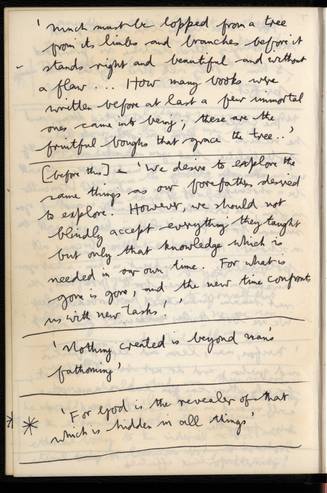 ' Much must be lopped from a tree
from its limbs and branches before it
- stands right and beautiful and without
a flaw ... How many books were
written before at last a few immortal
ones came into being; these are the
fruitful boughs that grace the tree..'
[before this] = 'We desire to explore the
same things as our forefathers desired
to explore. However, we should not
blindly accept everything they taught
but only that knowledge which is
needed in our own time. For what is
gone is gone, and the new time confronts
us with new tasks.'
'Nothing created is beyond man's
fathoming'
* * 'For God is the revealer of that
which is hidden in all things'